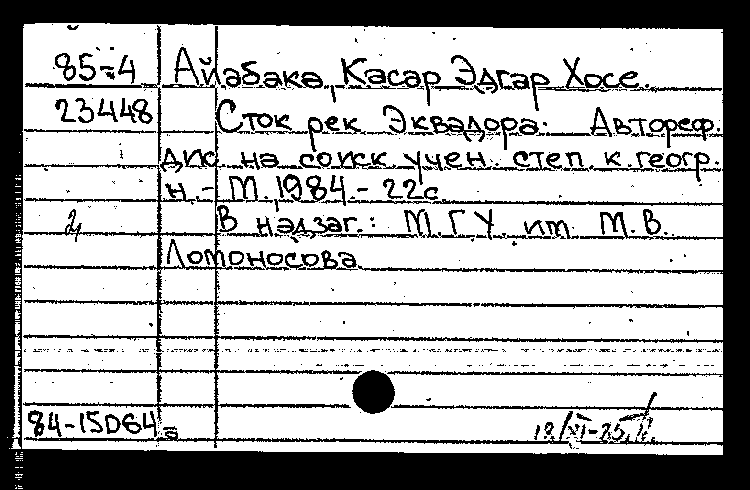 85-4 Айабака, Касар Эдгар Хосе.
23448 Сток рек Эквадора: Автореф.
дис на соиск учен. степ. к. геогр.
н. - М., 1984. - 22с.
2 В надзаг.: М.Г.У. им. М.В.
Ломоносова
84-15064а